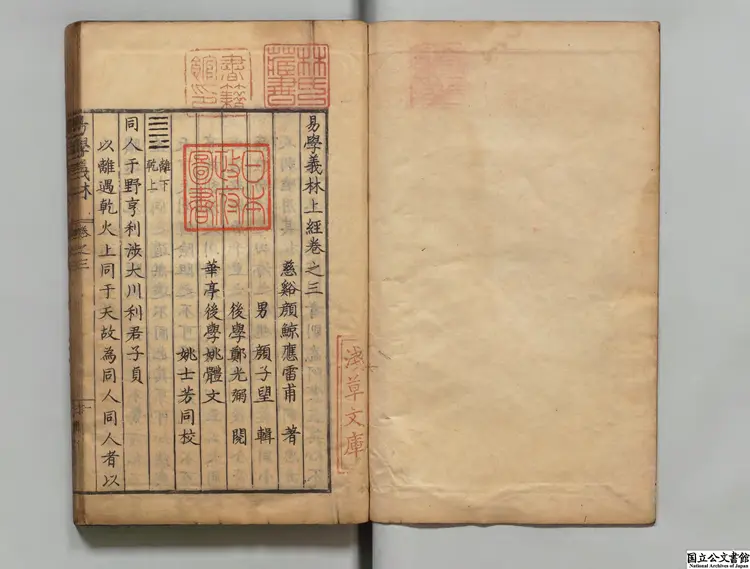 淺草文庫
林氏
藏書
書籍
館印
日本
政府
圖書
易學義林上經卷之三
慈谿顔鯨應雷甫 著
男 顔子望 輯
後學鄭光弼 閱
華亭後學姚體文
姚士芳同校
離下
乾上
同人于野亨利涉大川利君子貞
以離遇乾火上同于天故為同人同人者以
易學義林 卷之三
国立公文書館
National Archives of Japan